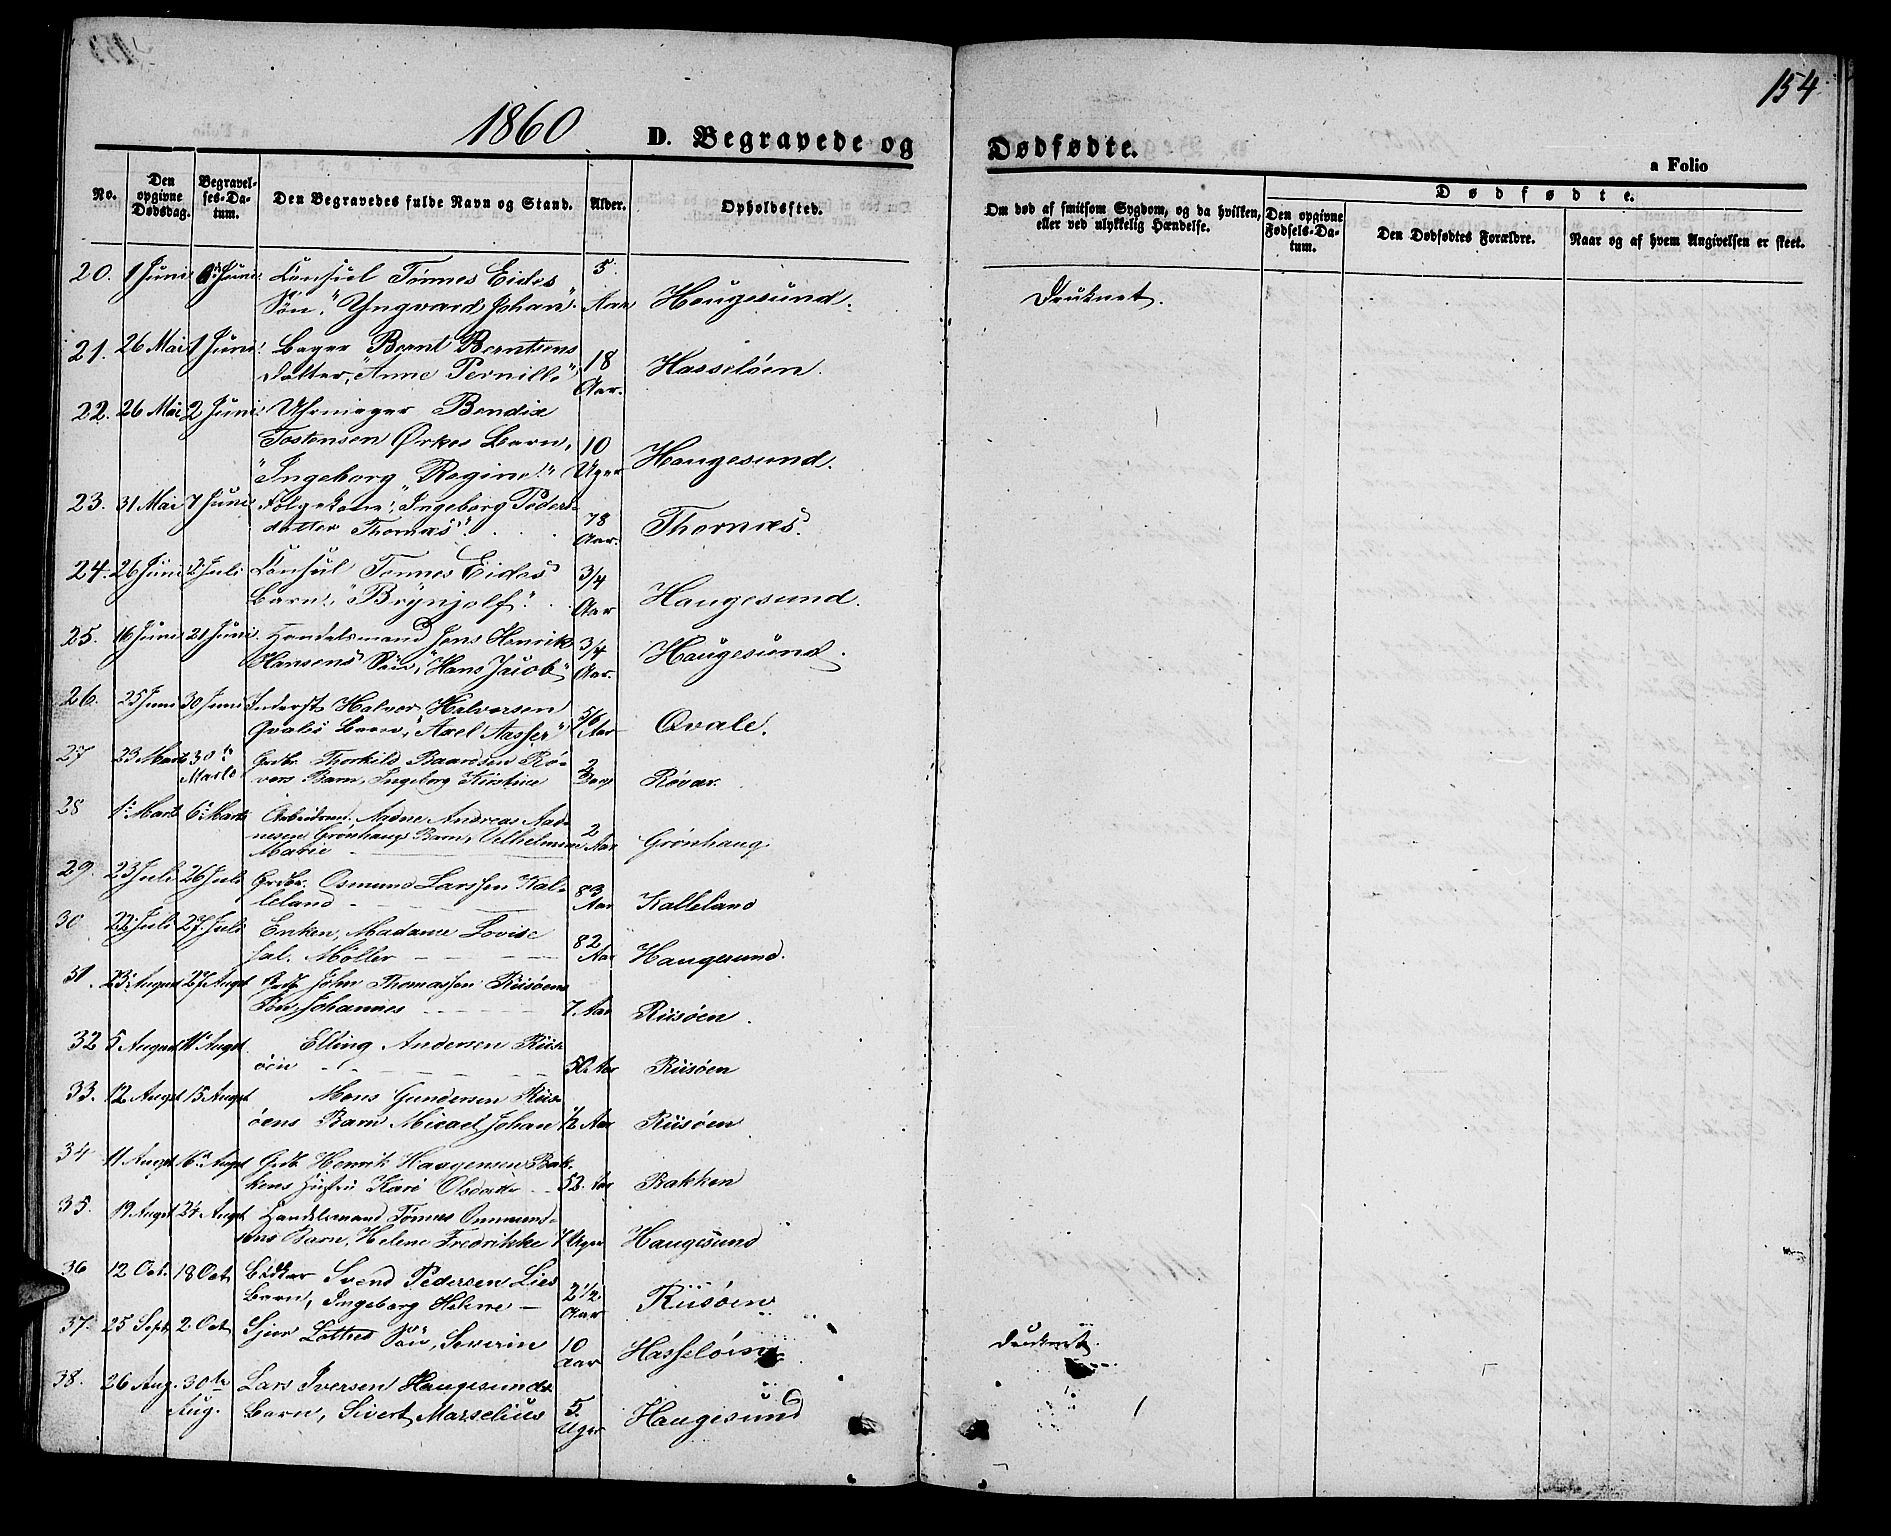 154
1860 D. Begravede og Dødfødte. a Folio
No. Den opgivne Dødsdag. Begravelses-Datum. Den Begravedes fulde Navn og Stand. Alder. Opholdssted. Om død af smitsom Sygdom, og da hvilken, eller ved ulykkelig Hændelse. Den opgivne Fødsels-Datum. Dødfødte. Den Dødfødtes Forældre. Naar og af hvem Angivelsen er skeet.
20. 1 Juni 6 Juni Consul Tønnes Eides 5
Søn, "Yngvard Johan" Aar Haugesund. Druknet.
21. 26 Mai 1 Juni Bager Bernt Berntsens 18
Datter, "Anne Pernille" Aar. Hasseløen.
22. 26 Mai 2 Juni Uhrmager Bendix
Tostensen Ørkes Barn, 10
"Ingeborg Regine" Uger Haugesund.
23. 31 Mai 7 Juni Følgekone, Ingeborg Peders-
datter Thornæs. 78 Aar. Thornæs.
24. 26 Juni 2 Juli Consul Tønnes Eides 3/4
Barn, "Brynjolf". Aar Haugesund.
25. 16 Juni 21 Juni Handelsmand Jens Henrik 3/4
Hansens Søn, "Hans Jacob" Aar. Haugesund.
26. 25 Juni 30 Juni Inderst Halvor Halvorsen 5/6
Qvales Barn, "Axel Aasser" Aar Qvale.
27 23 Marts 30te Marts Grdbr. Thorkild Baardsen Rø-
vers Barn, Ingeborg Kirstine 2 Dage Røvær.
28 1: Marts 6: Marts Arbeidsmd. Aadne Andreas Aad-
nesen Grønhaugs Barn, Vilhelmine 2 Aar Grønhaug
Marie
29. 23 Juli 26 Juli Grdbr. Osmund Larssen Kal-
leland 83 Aar Kalleland
30 22 Juli 27 Juli Enken, Madame Lovise
sal. Møller 82 Aar Haugesund.
31. 23 August 27 Augst Grdb John Thomassen Riisøens
Søn, Johannes 7 Aar Riisøen.
32 5 August 11 Augst Elling Andersen Riis-
øen 50 Aar Riisøen
33. 12 Augst 15 Augst Mons Gundersen Riis-
øens Barn Micael Johan 1/2 Aar Riisøen
34 11 Augst 16 Augst Grdb Henrik Haagensen Bak-
kens Hustru Kari Olsdatter 52 Aar Bakken
35. 19 Augst 24 Augst Handelsmand Tønnes Onmund-
sens Barn, Helene Fredrikke 7 Uger Haugesund
36 12 Oct. 18 Oct Bødker Svend Pedersen Lies
Barn, Ingeborg Helene 2 1/2 Aar Riisøen
37. 25 Sept. 2 Oct Søn, Severin 10
Aar Hasseløen Druknet.
38. 26 Aug. 30te Aug. Lars Iversen Haugesunds
Barn, Sivert Marselius 5. Uger Haugesund